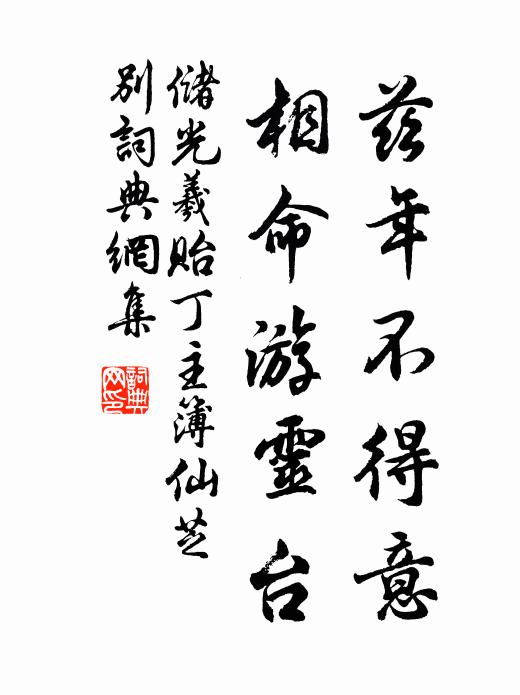 茲年不得意
相命游靈台
儲光羲貽丁主簿仙芝
別詞典網集
詞典
网印